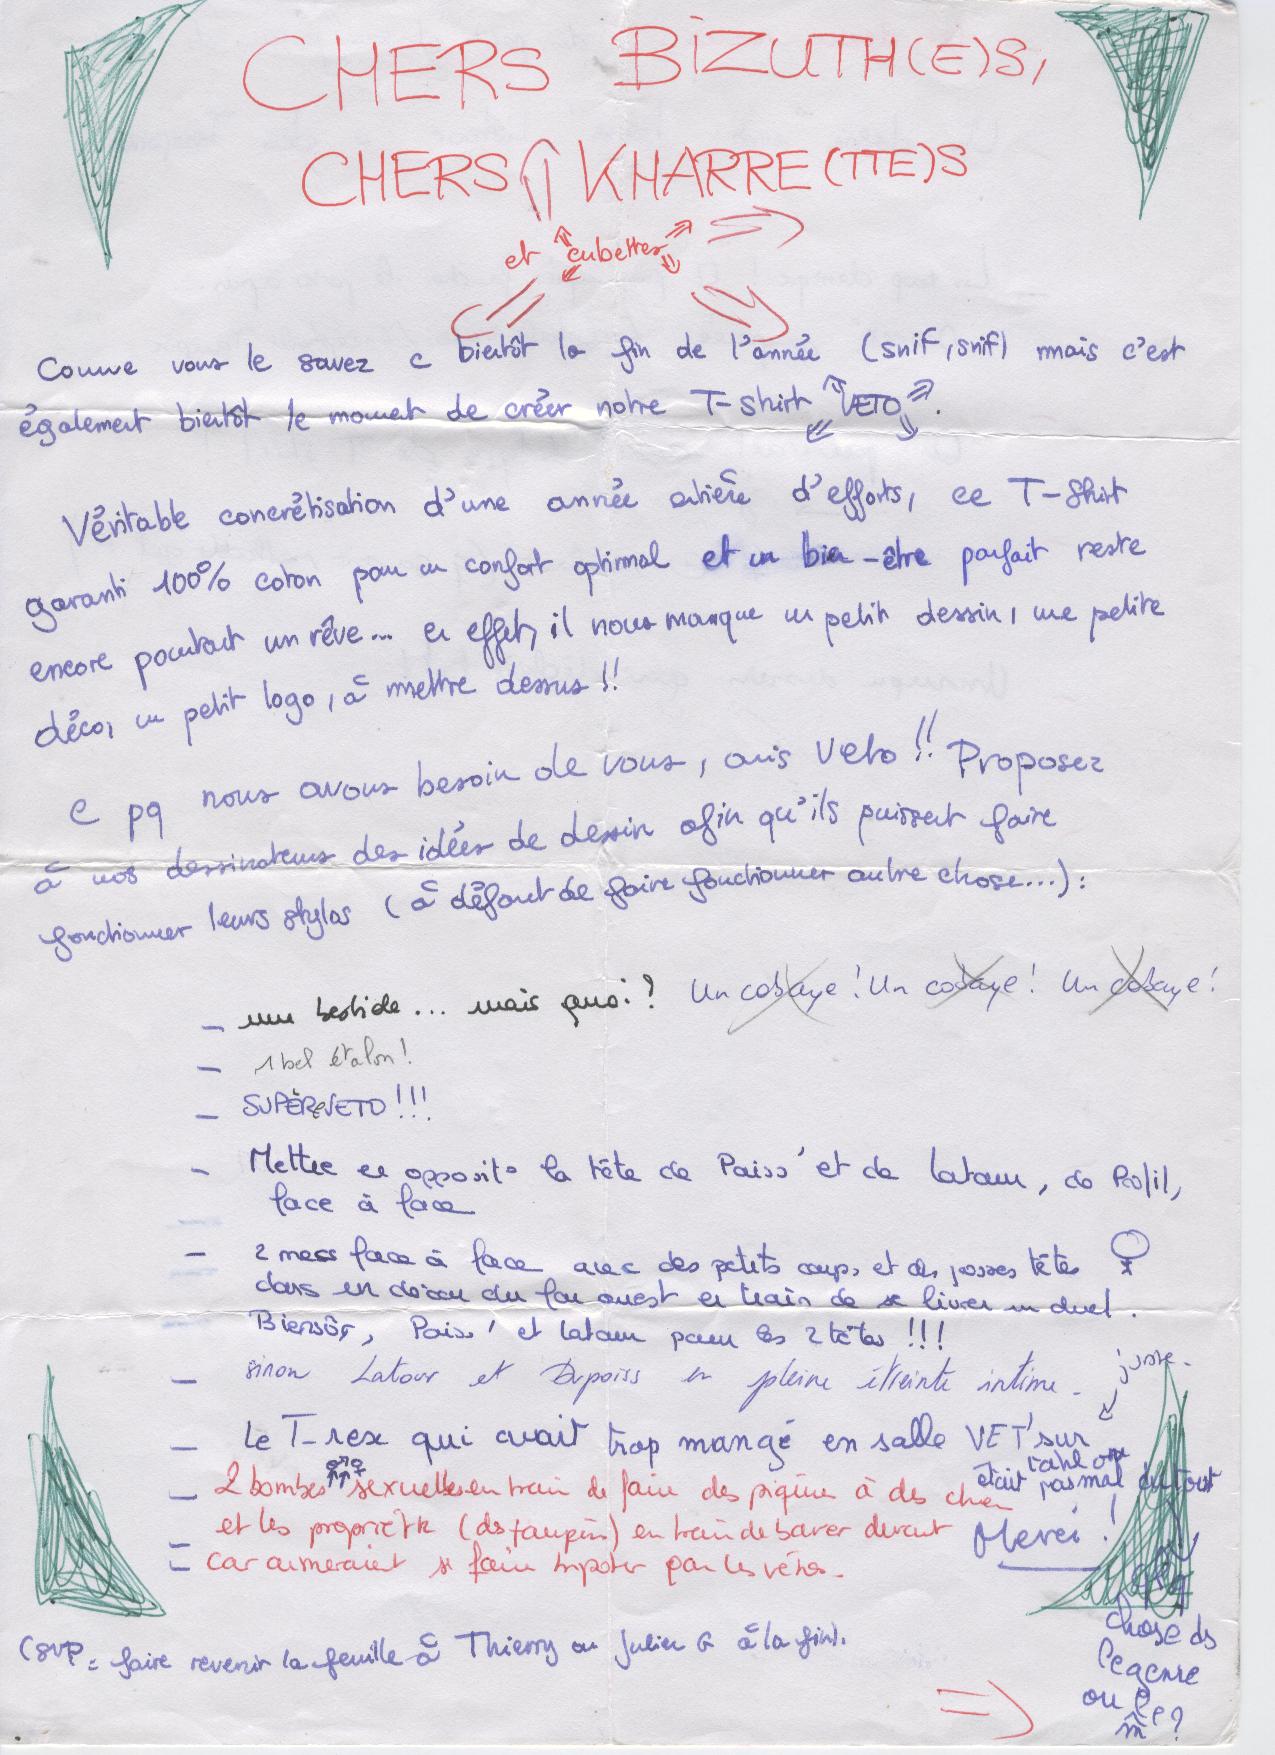 CHERS BIZUTH(E)S,
CHERS KHARRE(TTE)S
et cubettes
Comme vous le savez c bientôt la fin de l'année (snif, snif) mais c'est
également bientôt le moment de créer notre T-shirt VETO.
Véritable concrétisation d'une année entière d'efforts, ce T-Shirt
garanti 100% coton pour un confort optimal et un bien-être parfait reste
encore pourtant un rêve... en effet, il nous manque un petit dessin, une petite
déco, un petit logo, à mettre dessus !!
C pq nous avons besoin de vous, amis Veto !! Proposez
à nos dessinateurs des idées de dessin afin qu'ils puissent faire
fonctionner leurs stylos (à défaut de faire fonctionner autre chose...) :
- une bestiole... mais quoi ? Un cobaye ! Un cobaye ! Un cobaye !
- 1 bel étalon !
- SUPER VETO !!!
- Mettre en opposit° la tête de Paiss' et de Latour, de Profil,
face à face
- 2 mecs face à face avec des petits corps et des grosses têtes
dans un décor du far ouest en train de se livrer un duel.
Biensûr, Paiss' et Latour pour les 2 têtes !!!
- sinon Latour et Dupaiss en pleine étreinte intime.
juste.
- Le T-rex qui avait trop mangé en salle VET' sur
était pas mal du tout
- 2 bombes sexuelles en train de faire des piqûres à des chien
et les propriétR (des taupins) en train de baver devant
Merci !
- car aimeraient se faire tripoter par les vétos.
(SVP = faire revenir la feuille à Thierry ou Julien G à la fin).
chose ds
le genre
ou le
m̂ ?